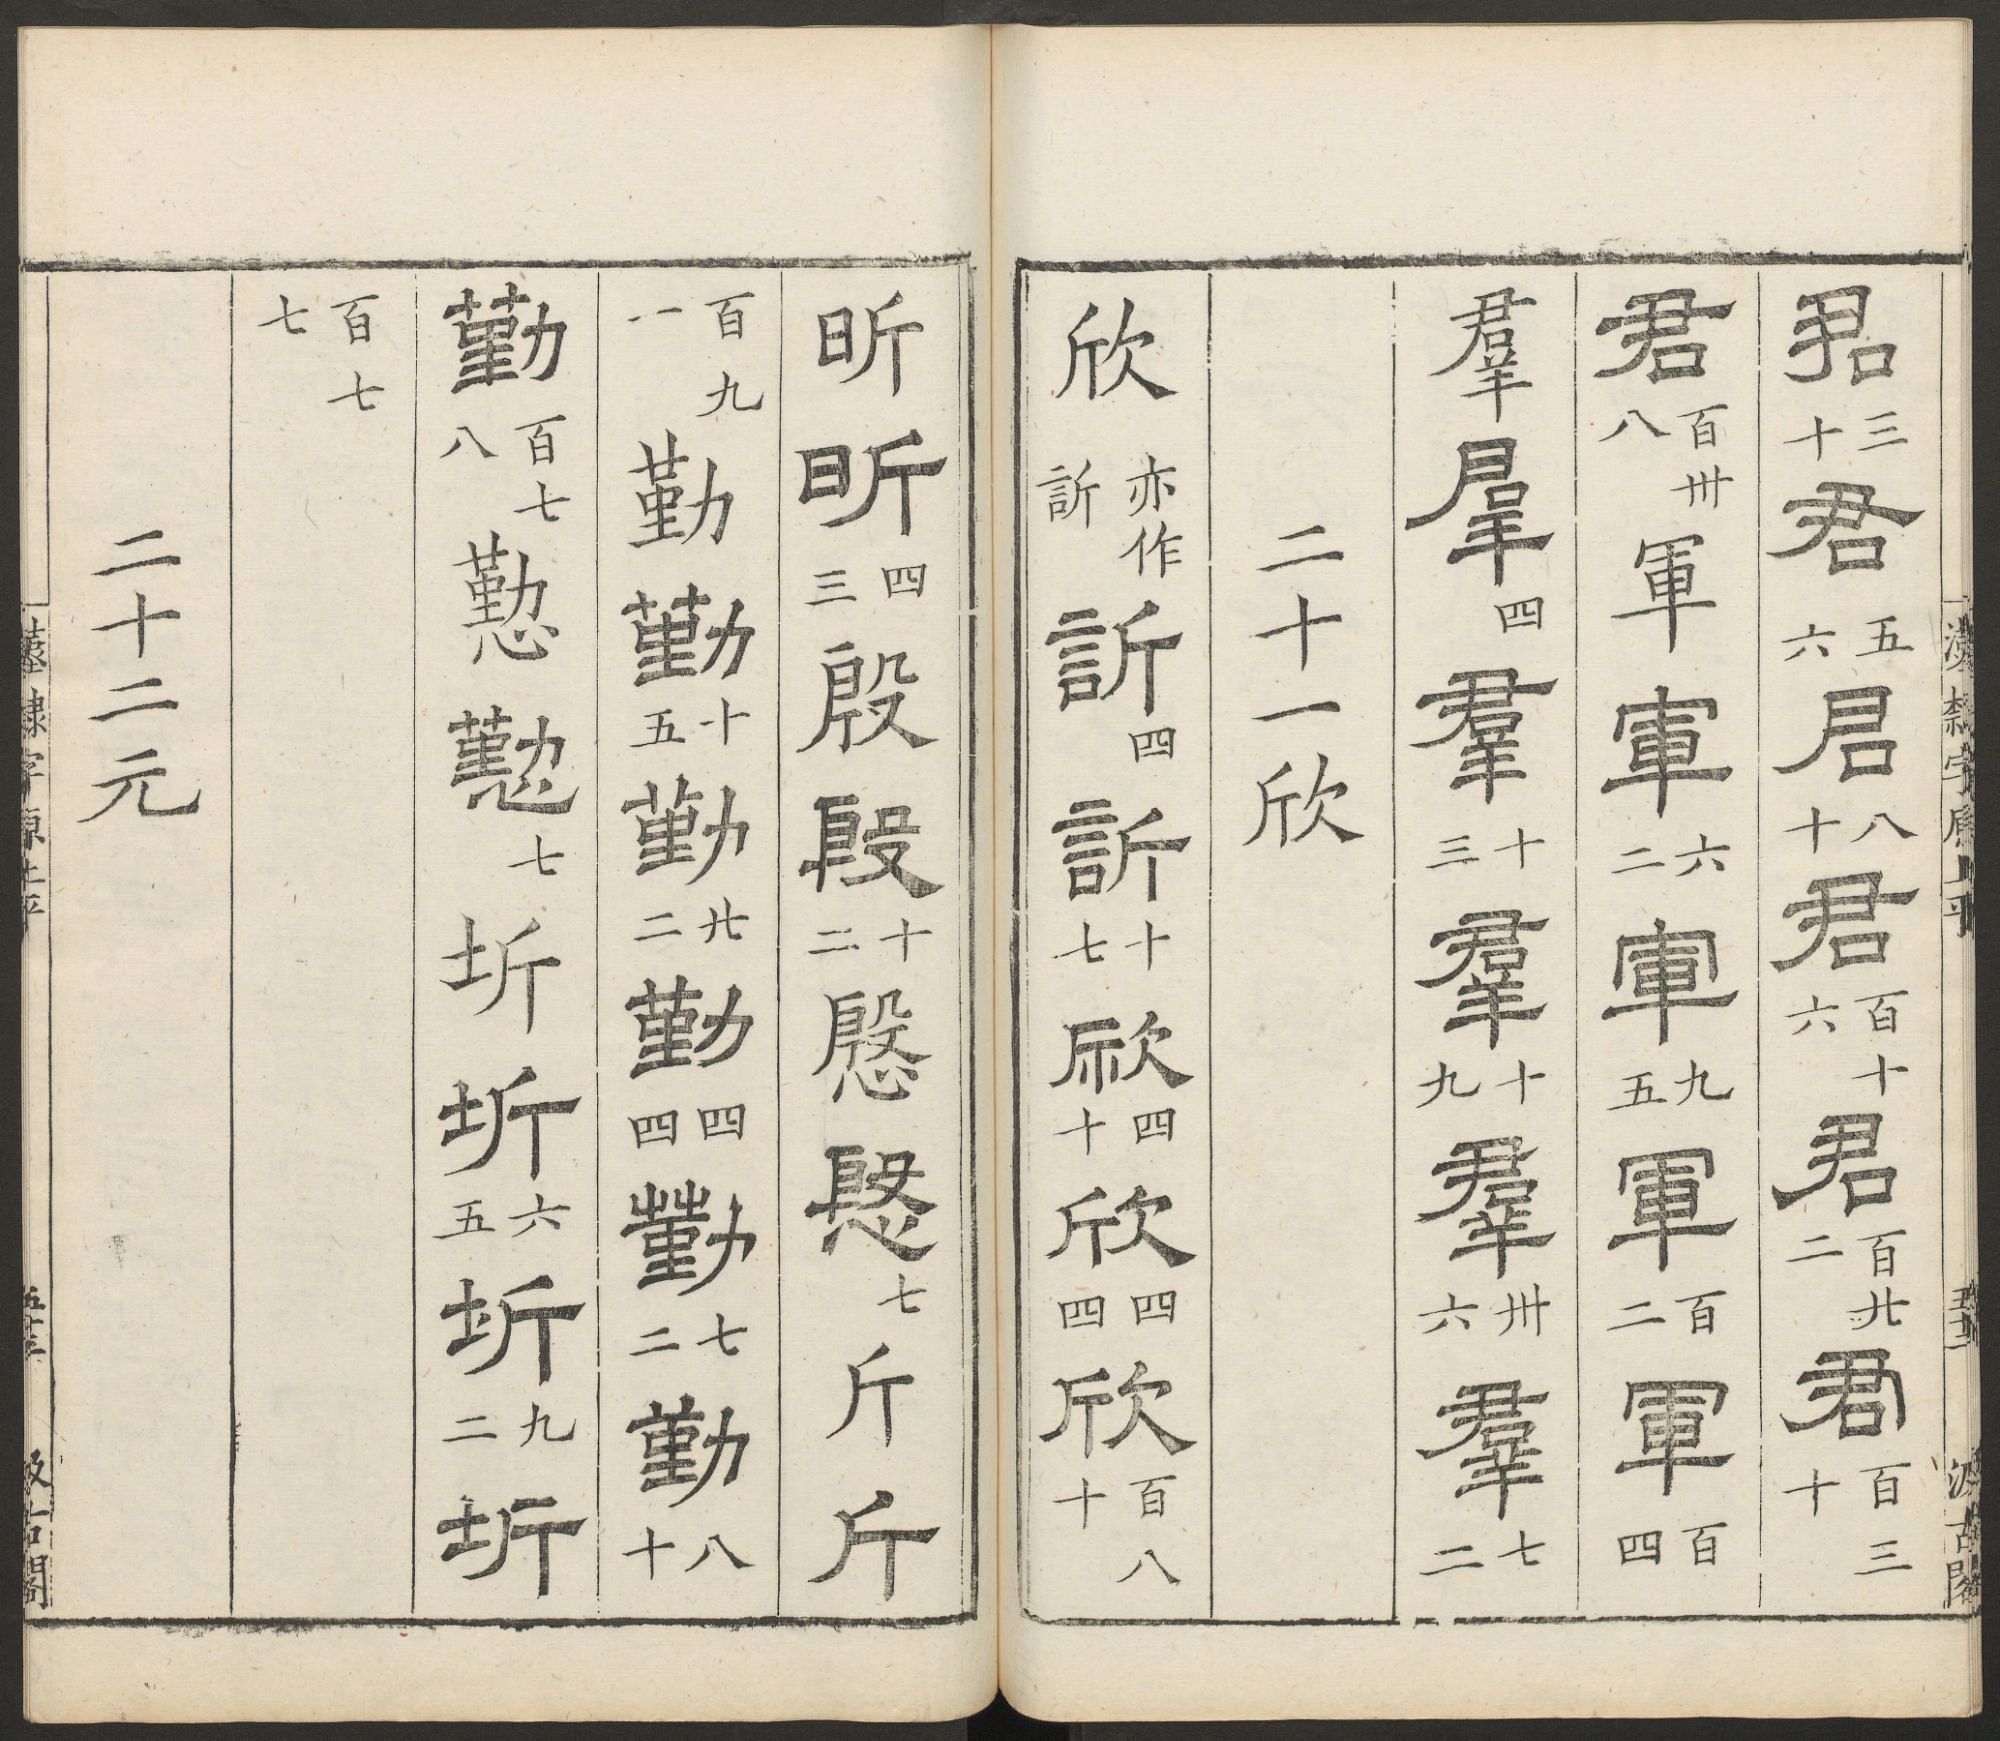 君三十君五六君八十君百十六君百廿二君百三十
君百卅八軍軍六二軍九五軍百二軍百四
羣羣四羣十三羣十九羣卅六羣七二
二十一欣
欣亦作訢訢四訢十七欣四十欣四四欣百八十
昕昕四三殷殷十二慇慇七斤斤
百九一勤勤十五勤廿二勤四四勤七二勤八十
勤百七八懃懃七圻圻六五圻九二圻
百七七
二十二元
漢隸字原上平
汲古閣
漢隸字原上平
汲古閣